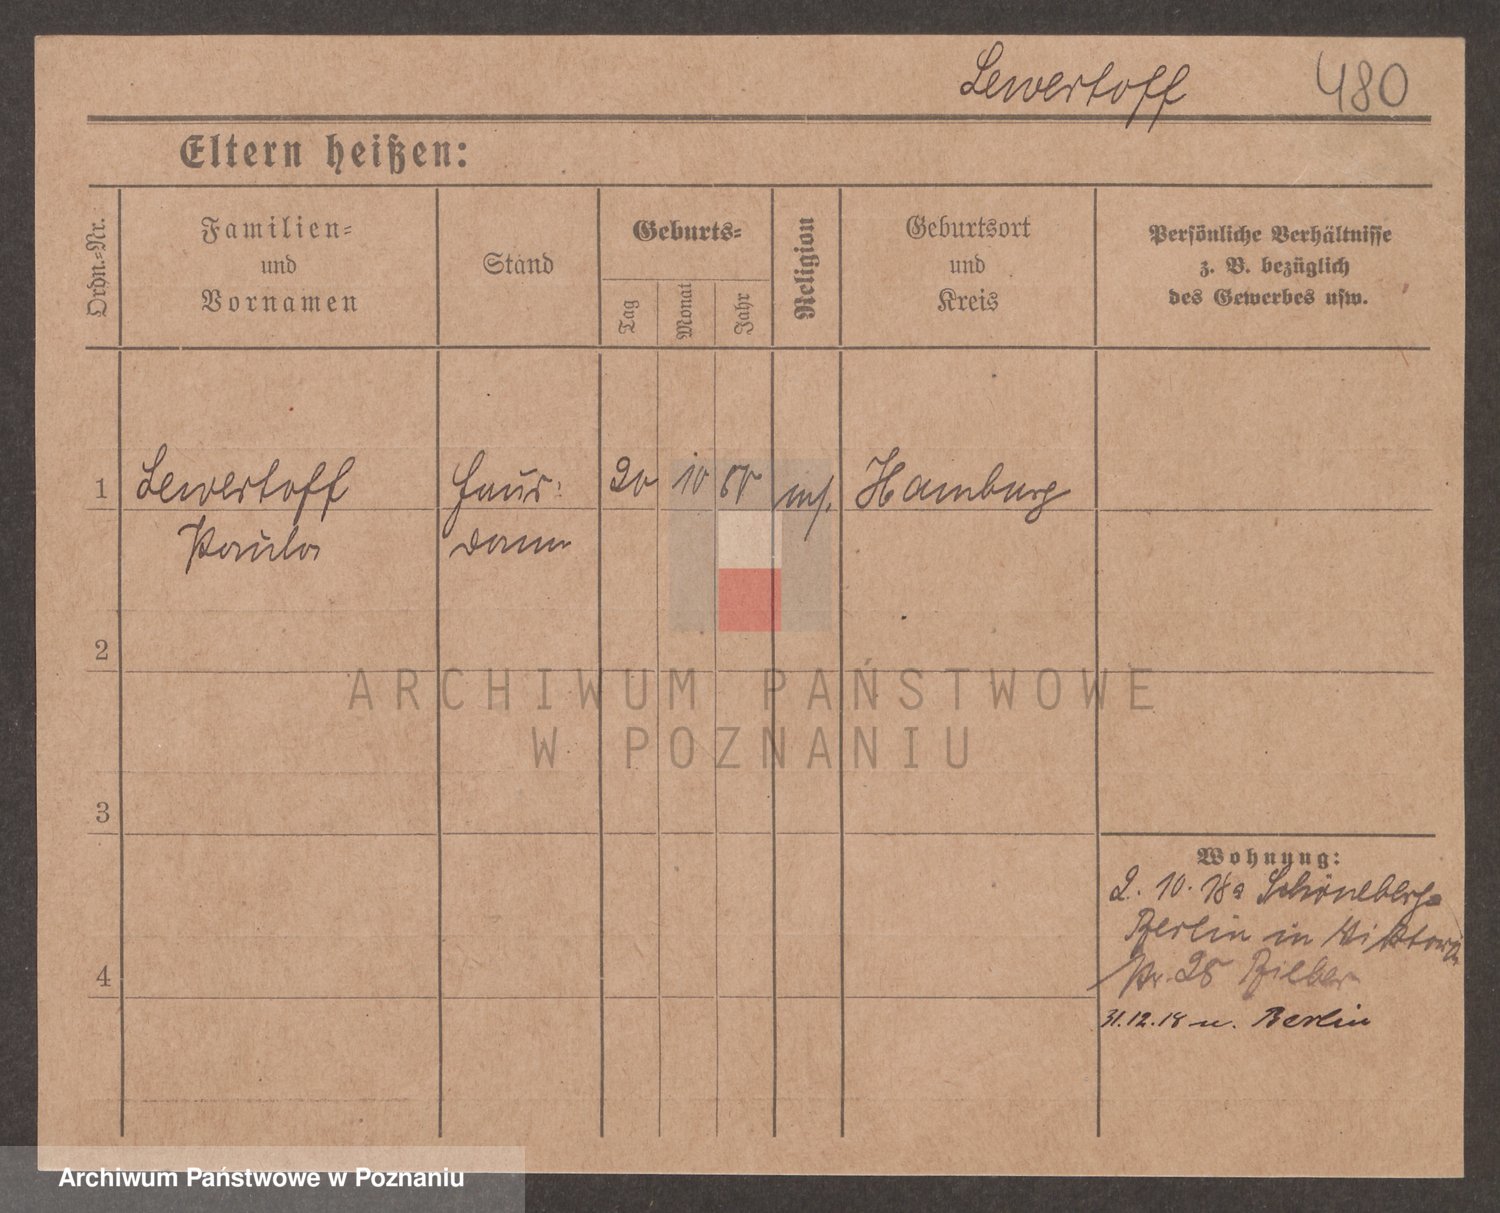 Lewertoff 480
Eltern heißen:
Ordn.-Nr.
Familien-
und
Vornamen
Stand
Geburts-
Tag
Monat
Jahr
Religion
Geburtsort
und
Kreis
Persönliche Verhältnisse
z. B. bezüglich
des Gewerbes usw.
1 Lewertoff Haus- 20 10 mos. Hamburg
Paula dame
2
3
4
Wohnung:
2. 10. 18 a Schöneberg-
Berlin in Viktoria
Str. 25
31.12.18 n. Berlin
ARCHIWUM PAŃSTWOWE
W POZNANIU
Archiwum Państwowe w Poznaniu